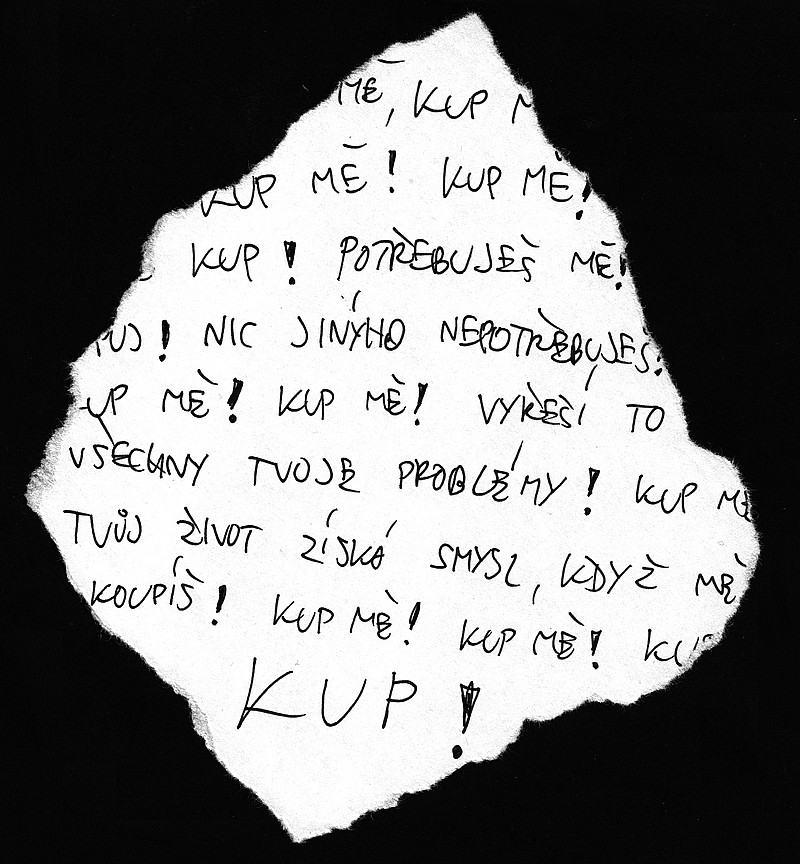 MĚ, KUP
KUP MĚ! KUP MĚ!
KUP! POTŘEBUJEŠ MĚ!
! NIC JINÝHO NEPOTŘEBUJEŠ!
MĚ! KUP MĚ! VYŘEŠÍ TO
VŠECHNY TVOJE PROBLÉMY! KUP MĚ
TVŮJ ŽIVOT ZÍSKÁ SMYSL, KDYŽ MĚ
KOUPÍŠ! KUP MĚ! KUP MĚ! KUP
KUP!